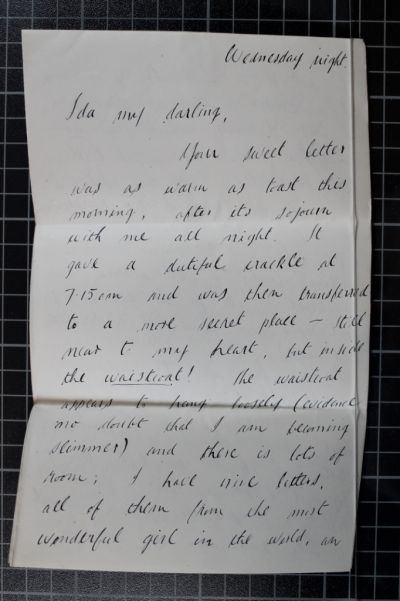 Wednesday night.
Ida my darling,
Your sweet letter
was as warm as toast this
morning, after its sojourn
with me all night. It
gave a dutiful crackle at
7.15am and was then transferred
to a more secret place – still
near to my heart, but inside
the waistcoat! The waistcoat
appears to hang loosely (evidence
no doubt that I am becoming
slimmer) and there is lots of
room; I have nine letters,
all of them from the most
wonderful girl in the world, an